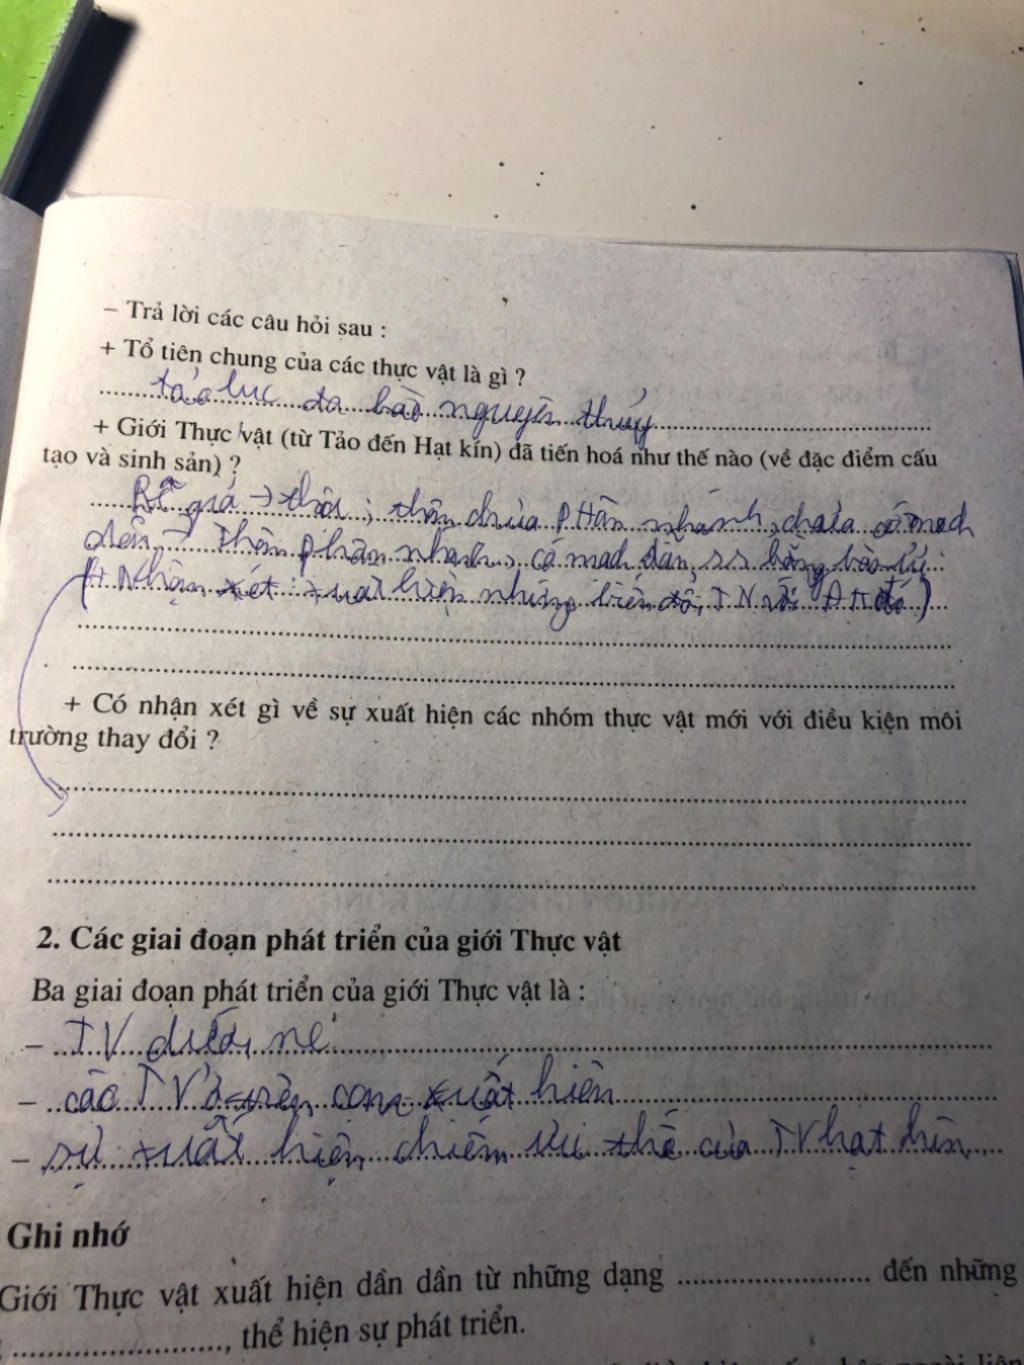 – Trả lời các câu hỏi sau :
+ Tổ tiên chung của các thực vật là gì ?
tảo lục đa bào nguyên thủy
+ Giới Thực vật (từ Tảo đến Hạt kín) đã tiến hoá như thế nào (về đặc điểm cấu
tạo và sinh sản) ?
Rễ giả → thật ; thân chưa pHân nhánh, chưa có mạch
dẫn → Thân phân nhánh, có mạch dẫn, ss bằng bào tử
(+ Nhận xét : xuất hiện những biến đổi TN
+ Có nhận xét gì về sự xuất hiện các nhóm thực vật mới với điều kiện môi
trường thay đổi ?
2. Các giai đoạn phát triển của giới Thực vật
Ba giai đoạn phát triển của giới Thực vật là :
– TV dưới nc
– các TV ở trên cạn xuất hiện
– sự xuất hiện chiếm ưu thế của TV hạt kín
Ghi nhớ
Giới Thực vật xuất hiện dần dần từ những dạng ........................ đến những
..........................., thể hiện sự phát triển.